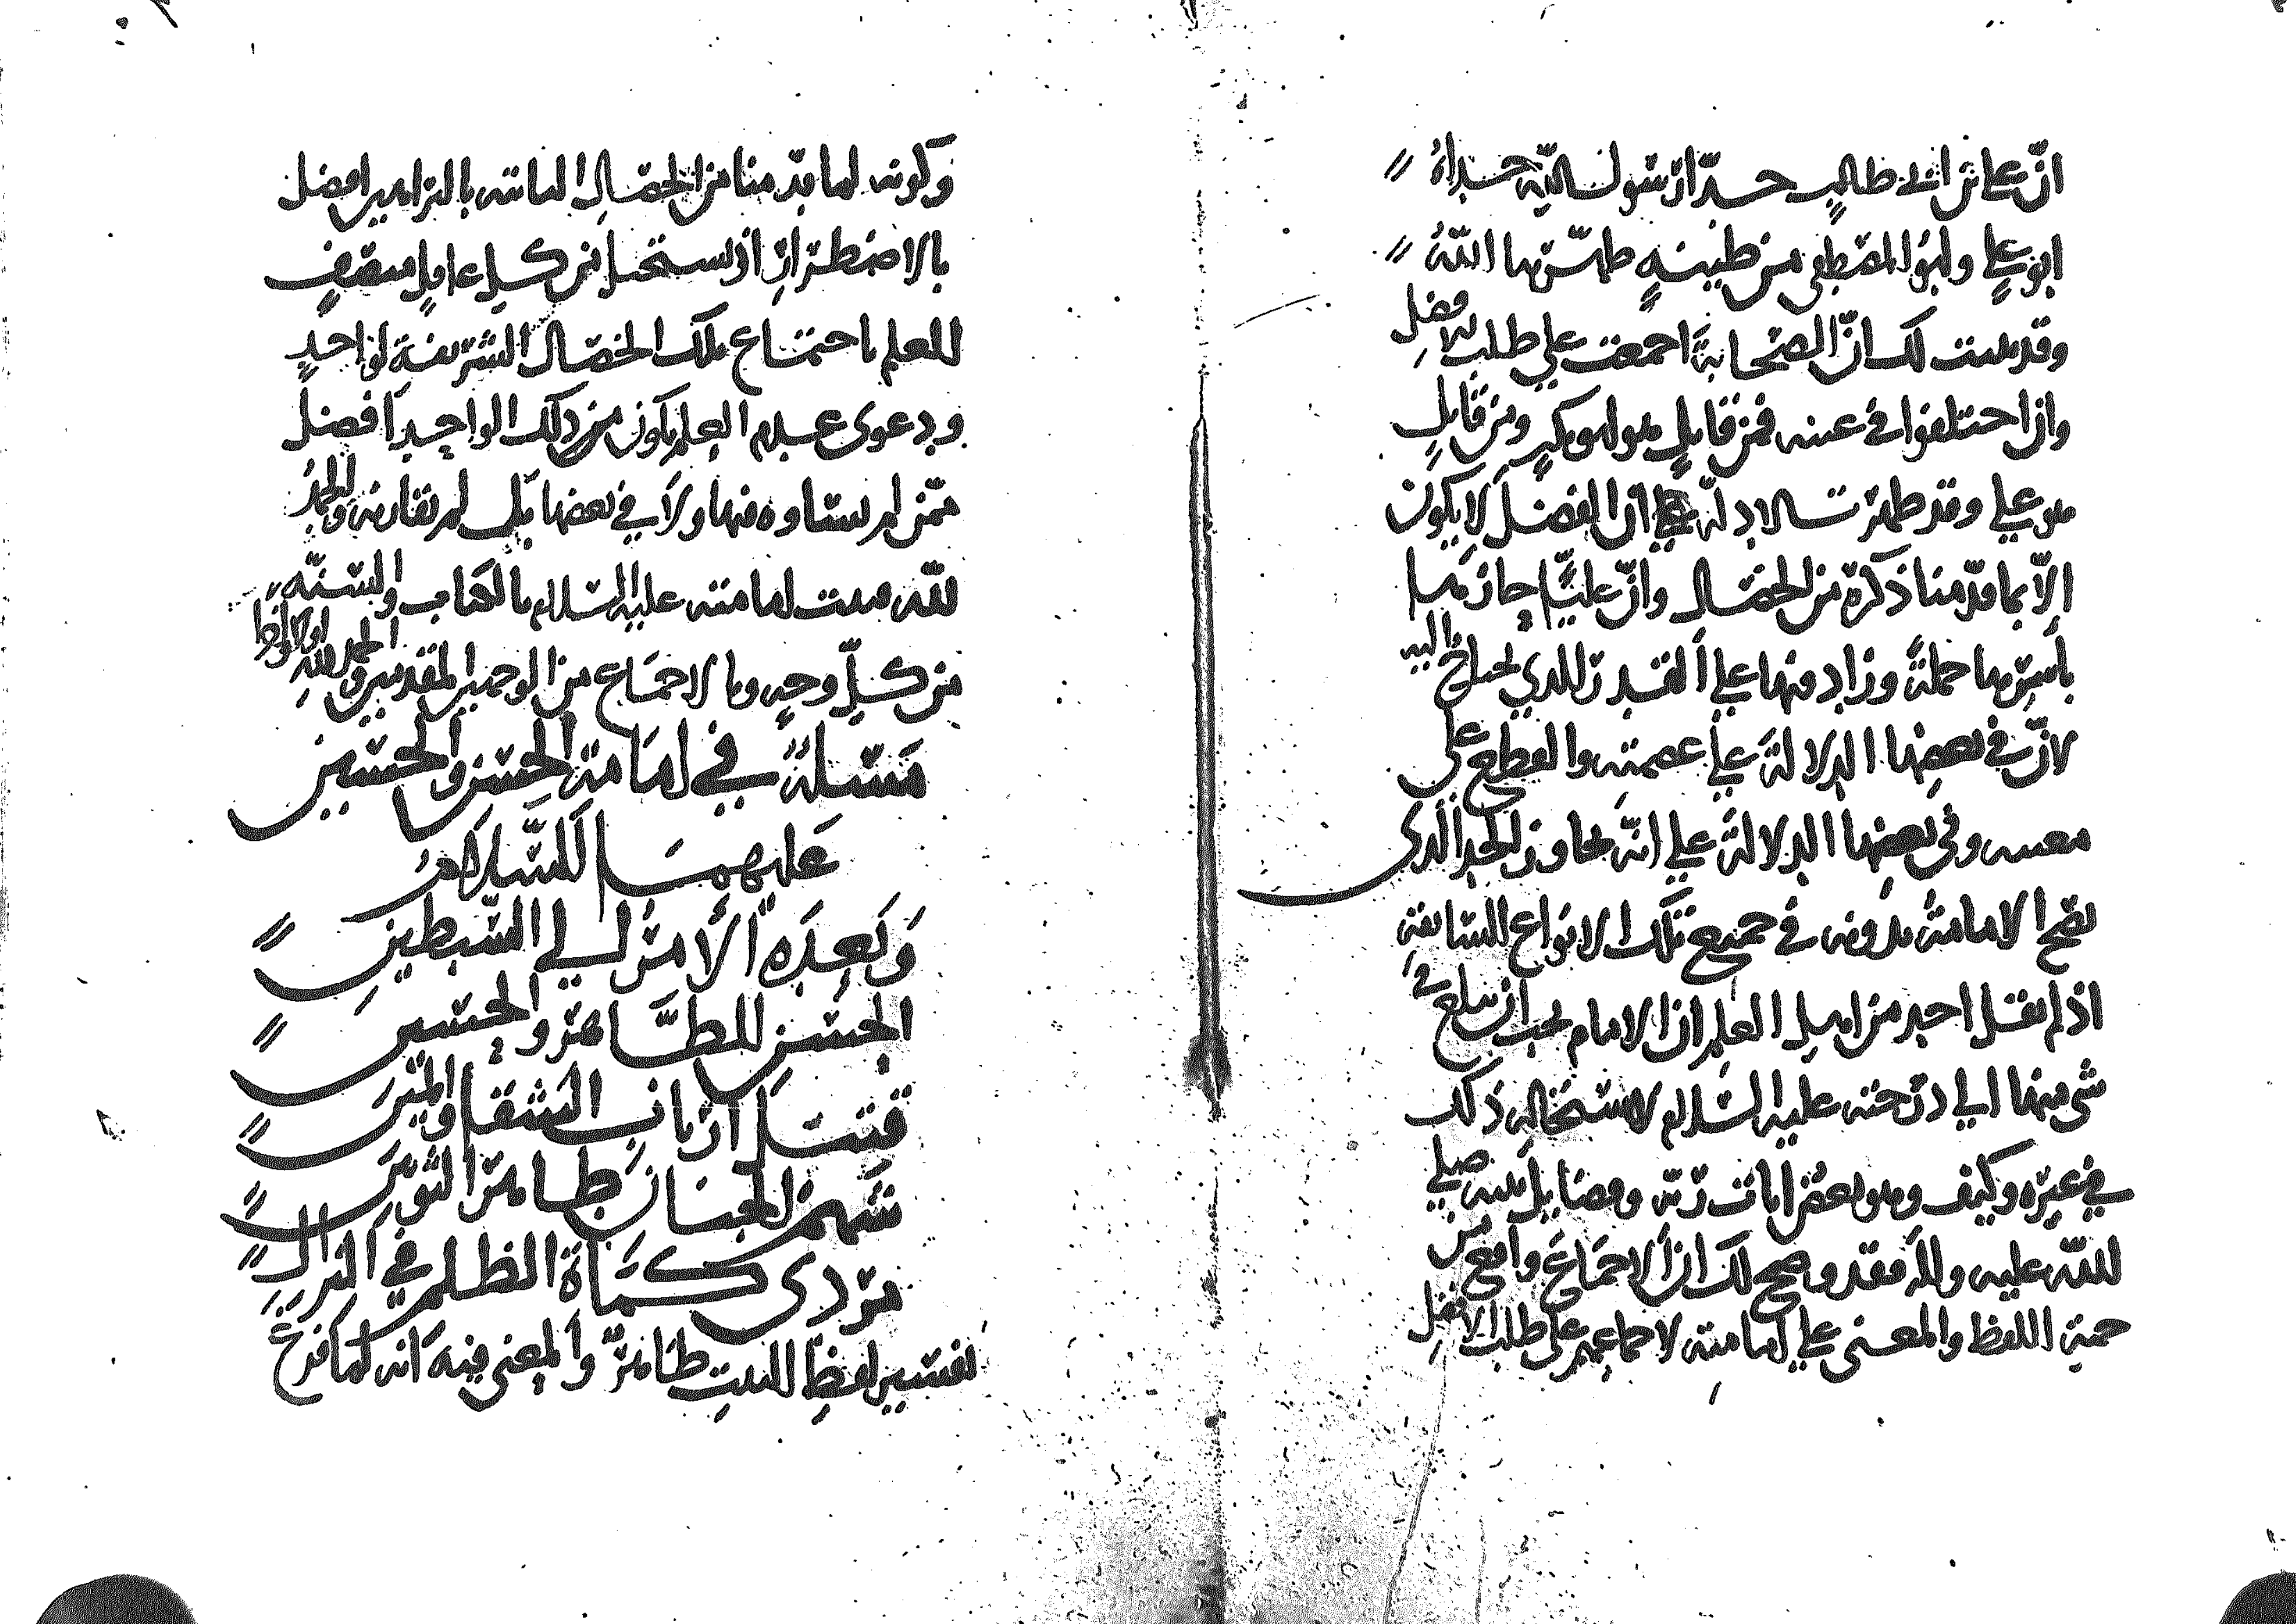 انّ علي بن ابي طالبٍ جدّا رسول اللّه جداهُ
ابو عليٍّ وابو المصطفى من طينةٍ طهّرها اللّهُ
وقد ثبت لك انّ الصّحابةَ اجمعت على طلب الافضلِ
وان اختلفوا في عينه فمن قايلٍ هو ابو بكرٍ ومن قايلٍ
هو علي وقد ظهرت الادلّة على ان الفضلَ لا يكون
إلّا بما قدّمنا ذكرَه من الخصال وانّ عليّاً حازها
بأسرها جملةً وزاد منها على القدر الذي يحتاج اليه
لانّ في بعضها الدلالةَ على عصمته والقطع على
مغيبه وفي بعضها الدلالةَ على انّه تجاوز الحد الذي
تصح الامامةُ بدونه في جميع تلك الانواع السابقةِ
اذ لم يقل احد من اهل العلم ان الامام يجب ان يبلغ في
شي منها الى درجته عليه السّلام لاستحالة ذلك
في غيره وكيف وهو بعضُ ايات ربّه وفضايل نبيه صلى
اللّه عليه وآله فقد وضح لك ان الاجماعَ واقع من
جهة اللفظ والمعنى على امامته لاجماعهم على طلب الافضلِ
وكونه لما قدّمنا من الخصالِ الثابتة بالبراهين افضل
بالاضطرارِ اذ يستحيل من كل عاقلٍ منصفٍ
العلم باجتماع تلك الخصال الشريفة لواحدٍ
ودعوى عدم العلم بكون ذلك الواحِد افضلَ
ممّن لم يساوه فيها ولا في بعضها بل لم يقاربه والحمدُ
للّه فثبت امامته عليه السّلام بالكتاب والسّنّه
من كلّ وجهٍ وبالاجماع من الوجهين المقدمين والحمد لله اولا واخرا
مَسئلةٌ في امامة الحسن والحسين
عَليهمَا السَّلام
وَبَعدَه الأمرُ الى السّبطين
الحسَنِ الطَّاهر والحُسين
قتيل اربابِ الشقا والمَين
شهم الجنان طاهر الثوبين
مُردى كماة الظلم في النزالِ
تفسير لفظ البيت ظاهرٌ والمعنى فيه انه لما فرغ